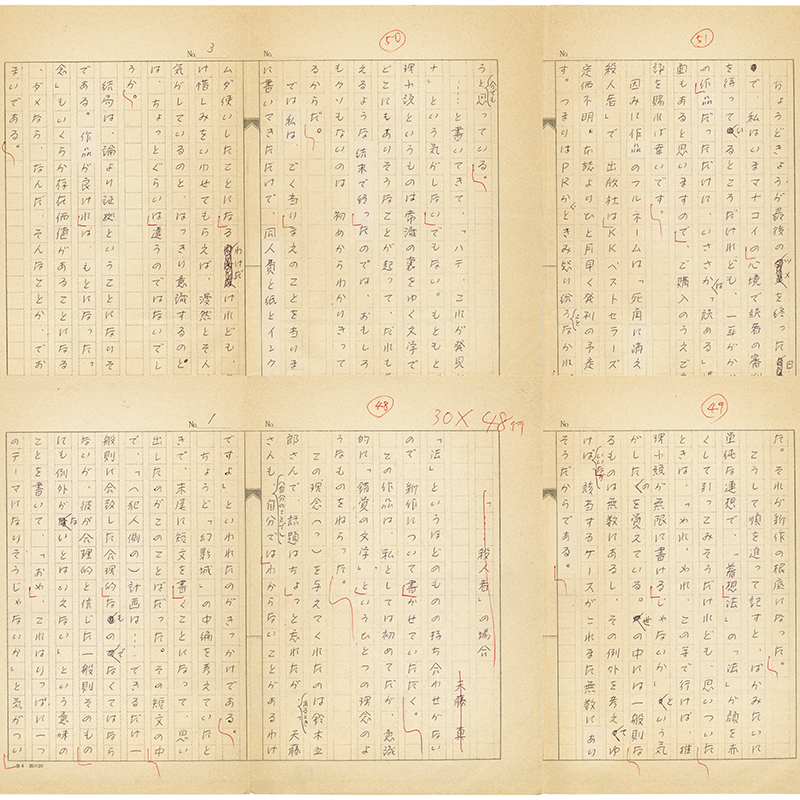 48
30×48行
「……殺人者」の場合
天藤 真
「法」というほどのものの持ち合わせがない
ので 新作について書かせていただく。
この作品は 私としては初めてだが 意識
的に「錯覚の文学」というひとつの理念のよ
うなものをねらった。
この理念(へっ)を与えてくれたのは鈴木五
郎さんで 話題はちょっと忘れたが「天藤
さんも自分のことで自分ではわからないことがあるわけ
No. 1
ですよ」といわれたのがきっかけである。
ちょうど「幻影城」の中編を考えていたと
きで、末尾に短文を書くことになって、思い
出したのがこのことばだった。その短文の中
で、「(犯人側の)計画は……できるだけ一
般則に合致した合理的なものでなくてはなら
ないが、彼が合理的と信じた一般則そのもの
にも例外がないとはいえない」という意味の
ことを書いて、「おや、これはりっぱに一つ
のテーマになりそうじゃないか」と気がつい
No.
49
た。それが新作の根底になった。
こうして順を追って記すと、ばかみたいに
単純な連想で、「着想法」の「法」が顔を赤
くして引っこみそうだけれども、思いついた
ときは、「われ、われ、この手で行けば、推
理小説が無限に書けるじゃないか」という気
がしたのを覚えている。世の中には一般則な
るものは無数にあるし、その例外を考えてゆ
けば 該当するケースがこれまた無数にあり
そうだからである。
No.
50
うと今でも思っている。
……と書いてきて、「ハテ これが発見
ナ」という気がしないでもない。もともと
理小説というものは常識の裏をゆく文学で
どこにもありそうなことが起って、だれも
えるような結末で終ったのでは、おもしろ
もクソもないのは 初めからわかりきって
るからだ。
では私は ごく当りまえのことを当りま
に書いてきただけで、同人費と紙とインク
No. 3
ムダ使いしたことになるわけだけれども、
け惜しみをいわせてもらえば、漠然とそん
気がしているのと、はっきり意識するのと
は、ちょっとぐらいは違うのではないでし
うか。
結局は、論より証拠ということになりそ
である。作品が良ければ、もとになった
念」もいくらか存在価値があることになる
、ダメなら、なんだ、そんなことか、でお
まいである。
No.
51
ちょうどきょうが最後のツメを終った日
で 私はいまマナコイの心境で読者の審
を待っているところだけれども、一五かか
の作品だっただけに、いささかは「読める」
面もあると思いますので、ご購入のうえご
評を賜れば幸いです。
因みに作品のフルネームは「死角に消え
殺人者」で 出版社はKKベストセラーズ
定価不明、本誌よりひと月早く発刊の予定
す。つまりはPRかときみ怒り給うことなかれ。